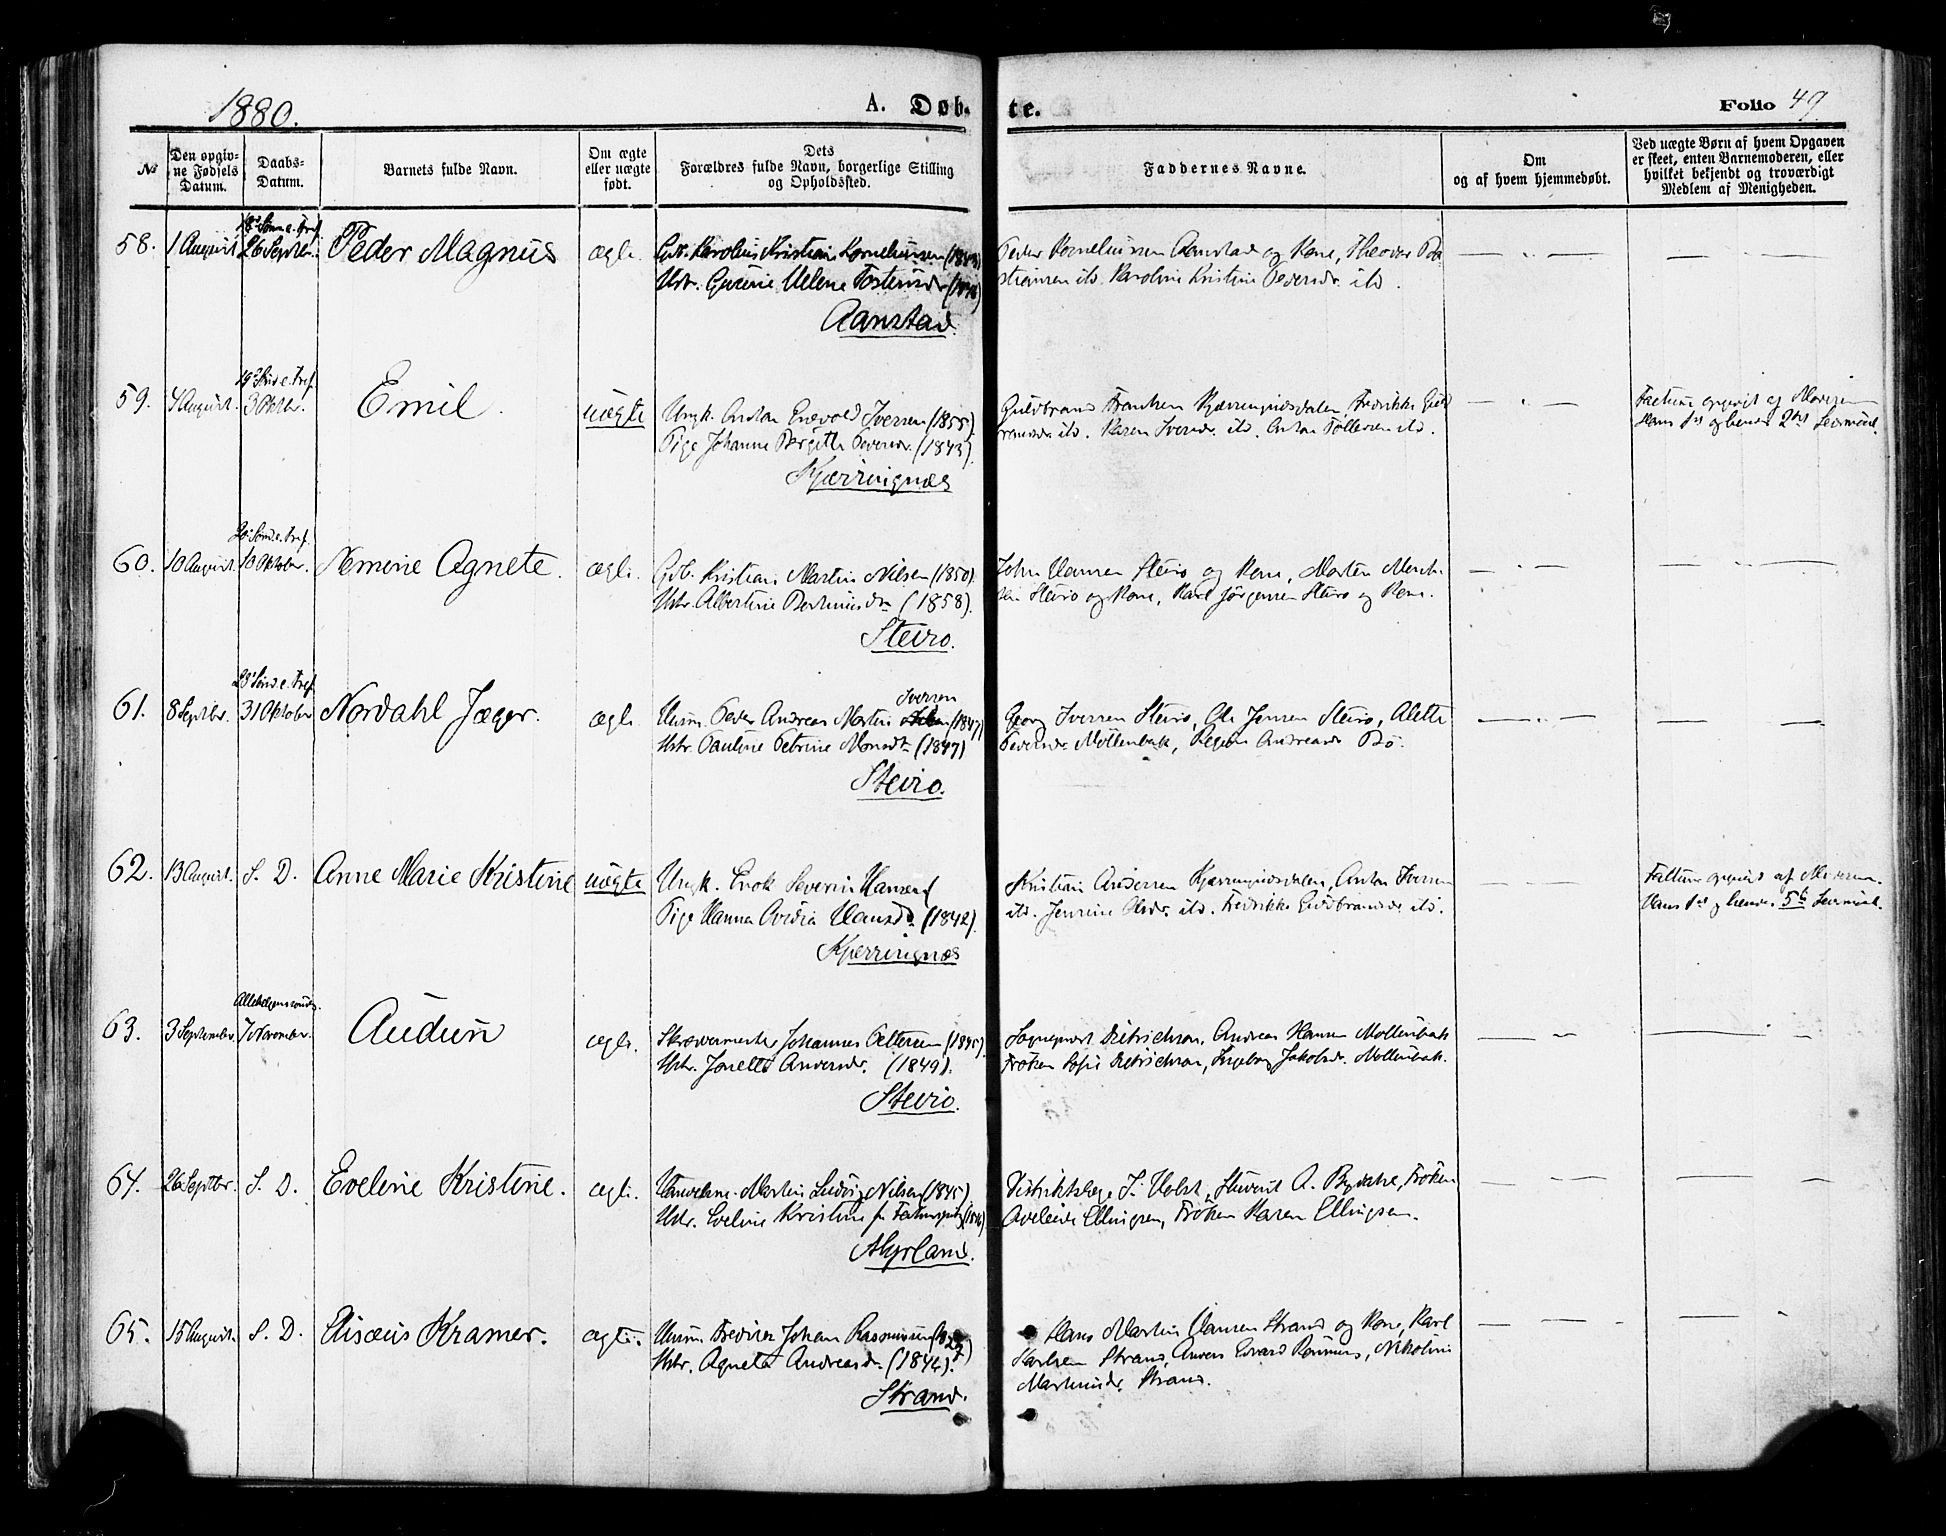 1880.
A. Døb-
te.
Folio 49
№
Den opgiv-
ne Fødsels
Datum.
Daabs-
Datum.
Barnets fulde Navn.
Om ægte
eller uægte
født.
Dets
Forældres fulde Navn, borgerlige Stilling
og Opholdssted.
Faddernes Navne.
Om
og af hvem hjemmedøbt.
Ved uægte Børn af hvem Opgaven
er skeet, enten Barnemoderen, eller
hvilket bekjendt og troværdigt
Medlem af Menigheden.
58.
1 August
18de Sønd. e. Tref.
26 Septbr.
Peder Magnus
ægte
Gdb. Karolius Kristian Korneliussen
Hstr. Gurine Helene
Aanstad.
Peder Korneliussen Aanstad og Kone, Theodor
ibd. Karoline Kristine Pedersdr. ibd.
59.
4 August.
19de Sønd e. Tref.
3 Oktbr.
Emil.
uægte
Ungk. Anton Enevold Iversen (1855).
Pige Johanne Bergitte Pedersdr. (1843).
Kjærringnæs
Guldbrand Kjærringnæsdalen, Fredrikke Guld
brandsdr. ibd. Karen Iversdr. ibd. Anton Tollefsen ibd.
Faderen opgivet af Moderen
Hans 1st og hendes 2det Leiermaal.
60.
10 August.
20de Sønd. e. Tref.
10 Oktober.
Nemine Agnete.
ægte.
Gdb. Kristian Martin Nilsen (1850).
Hstr. Albertine (1858).
Steiro.
John Hansen Steiro og Kone, Morten
Steiro og Kone, Karl Jørgensen Steiro og Kone.
61.
8 Septbr.
23de Sønd. e. Tref.
31 Oktober
Nordahl Jæger.
ægte
Iversen
Husm. Peder Andreas Martin (1847)
Hstr. Pauline Petrine Monsdtr (1847)
Steiro.
Georg Iversen Steiro, Ole Jensen Steiro, Alette
Pedersdr Möllenbak, Andreasdr Bö.
62.
13 August.
S. D.
Anne Marie Kristine
uægte
Ungk. Enok Severin Hansen
Pige Hanna Hansdtr (1842).
Kjærringnæs
Kristian Andersen Kjærringnæsdalen, Anton Iversen
ibd. Jensine Olsdr. ibd. Fredrikke Guldbrandsdr ibd.
Faderen opgivet af Moderen.
Hans 1st og hendes 5te Leiermaal.
63.
3 September.
Allehelgenssøndag.
7 November.
Audun
ægte.
Skræddermester Johannes Pettersen (1845).
Hstr. Jonette Andersdr. (1849).
Steiro.
Sogneprest Dietrichson, Andreas Hansen Möllenbak
Fröken Sofie Dietrichson, Ingeborg Jakobsdr. Möllenbak.
64.
26 Septbr.
S. D.
Eveline Kristine.
ægte.
Handelsm. Martin Ludvig Nilsen (1845).
Hstr. Eveline Kristine
Myrland.
Distriktslæge J. Holst, Student A. Fröken
Adeleide Ellingsen, Fröken Karen Ellingsen.
65.
15 August.
S. D.
Elisæus Kramer.
ægte.
Husm Fredrik Johan Rasmussen
Hstr. Agneta Andreasdr. (1842).
Strand.
Hans Martin Hansen Strand og Kone, Karl
Karlsen Strand, Anders Edvard Nikoline
Martinsdr. Strand.